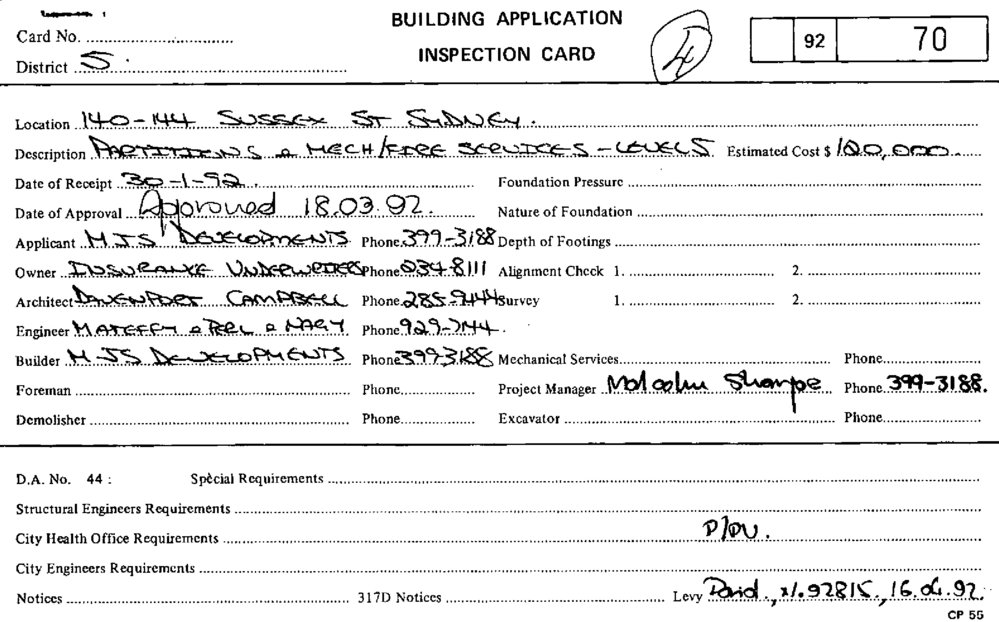 BUILDING APPLICATION
INSPECTION CARD
4
92 70
Card No.
District S
Location 140-144 SUSSEX ST SYDNEY.
Description PARTITIONS & MECH/FIRE SERVICES - LEVEL 5 Estimated Cost $ 120,000
Date of Receipt 30-1-92. Foundation Pressure
Date of Approval Approved 18.03.92. Nature of Foundation
Applicant MJS DEVELOPMENTS Phone 399-3188 Depth of Footings
Owner INSURANCE UNDERWRITERS Phone 234-8111 Alignment Check 1. 2.
Architect DAVENPORT CAMPBELL Phone 285-9444 Survey 1. 2.
Engineer Phone
Builder MJS DEVELOPMENTS Phone 399-3188 Mechanical Services Phone
Foreman Phone Project Manager Malcolm Sharpe Phone 399-3188.
Demolisher Phone Excavator Phone
D.A. No. 44: Special Requirements
Structural Engineers Requirements
City Health Office Requirements
City Engineers Requirements
Notices 317D Notices Levy Paid, 92815, 16.04.92.
CP 55